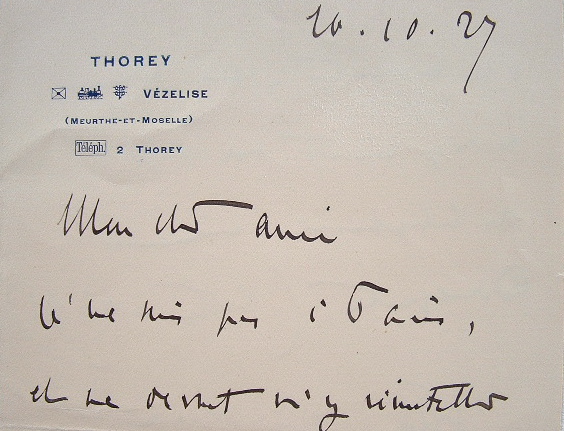 10.10.27
THOREY
VÉZELISE
(MEURTHE-ET-MOSELLE)
Téléph. 2 THOREY
Mon cher ami
Je ne suis pas à Paris,
et ne devant m'y réinstaller